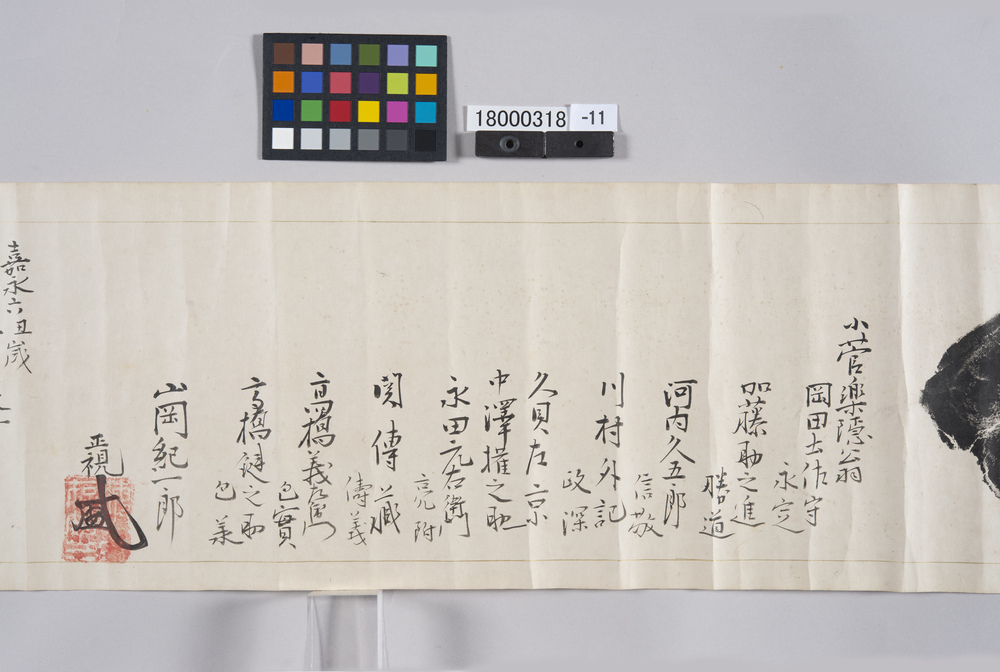 18000318 -11
小菅楽隠翁
岡田土佐守
永定
加藤助之進
勝道
河内久五郎
信敬
川村外記
政深
久貝左京
中澤権之助
永田元右衛門
亮附
関傳蔵
儔義
高橋義左衛門
包實
高橋鍵之助
包美
山岡紀一郎
正視
嘉永六丑歳